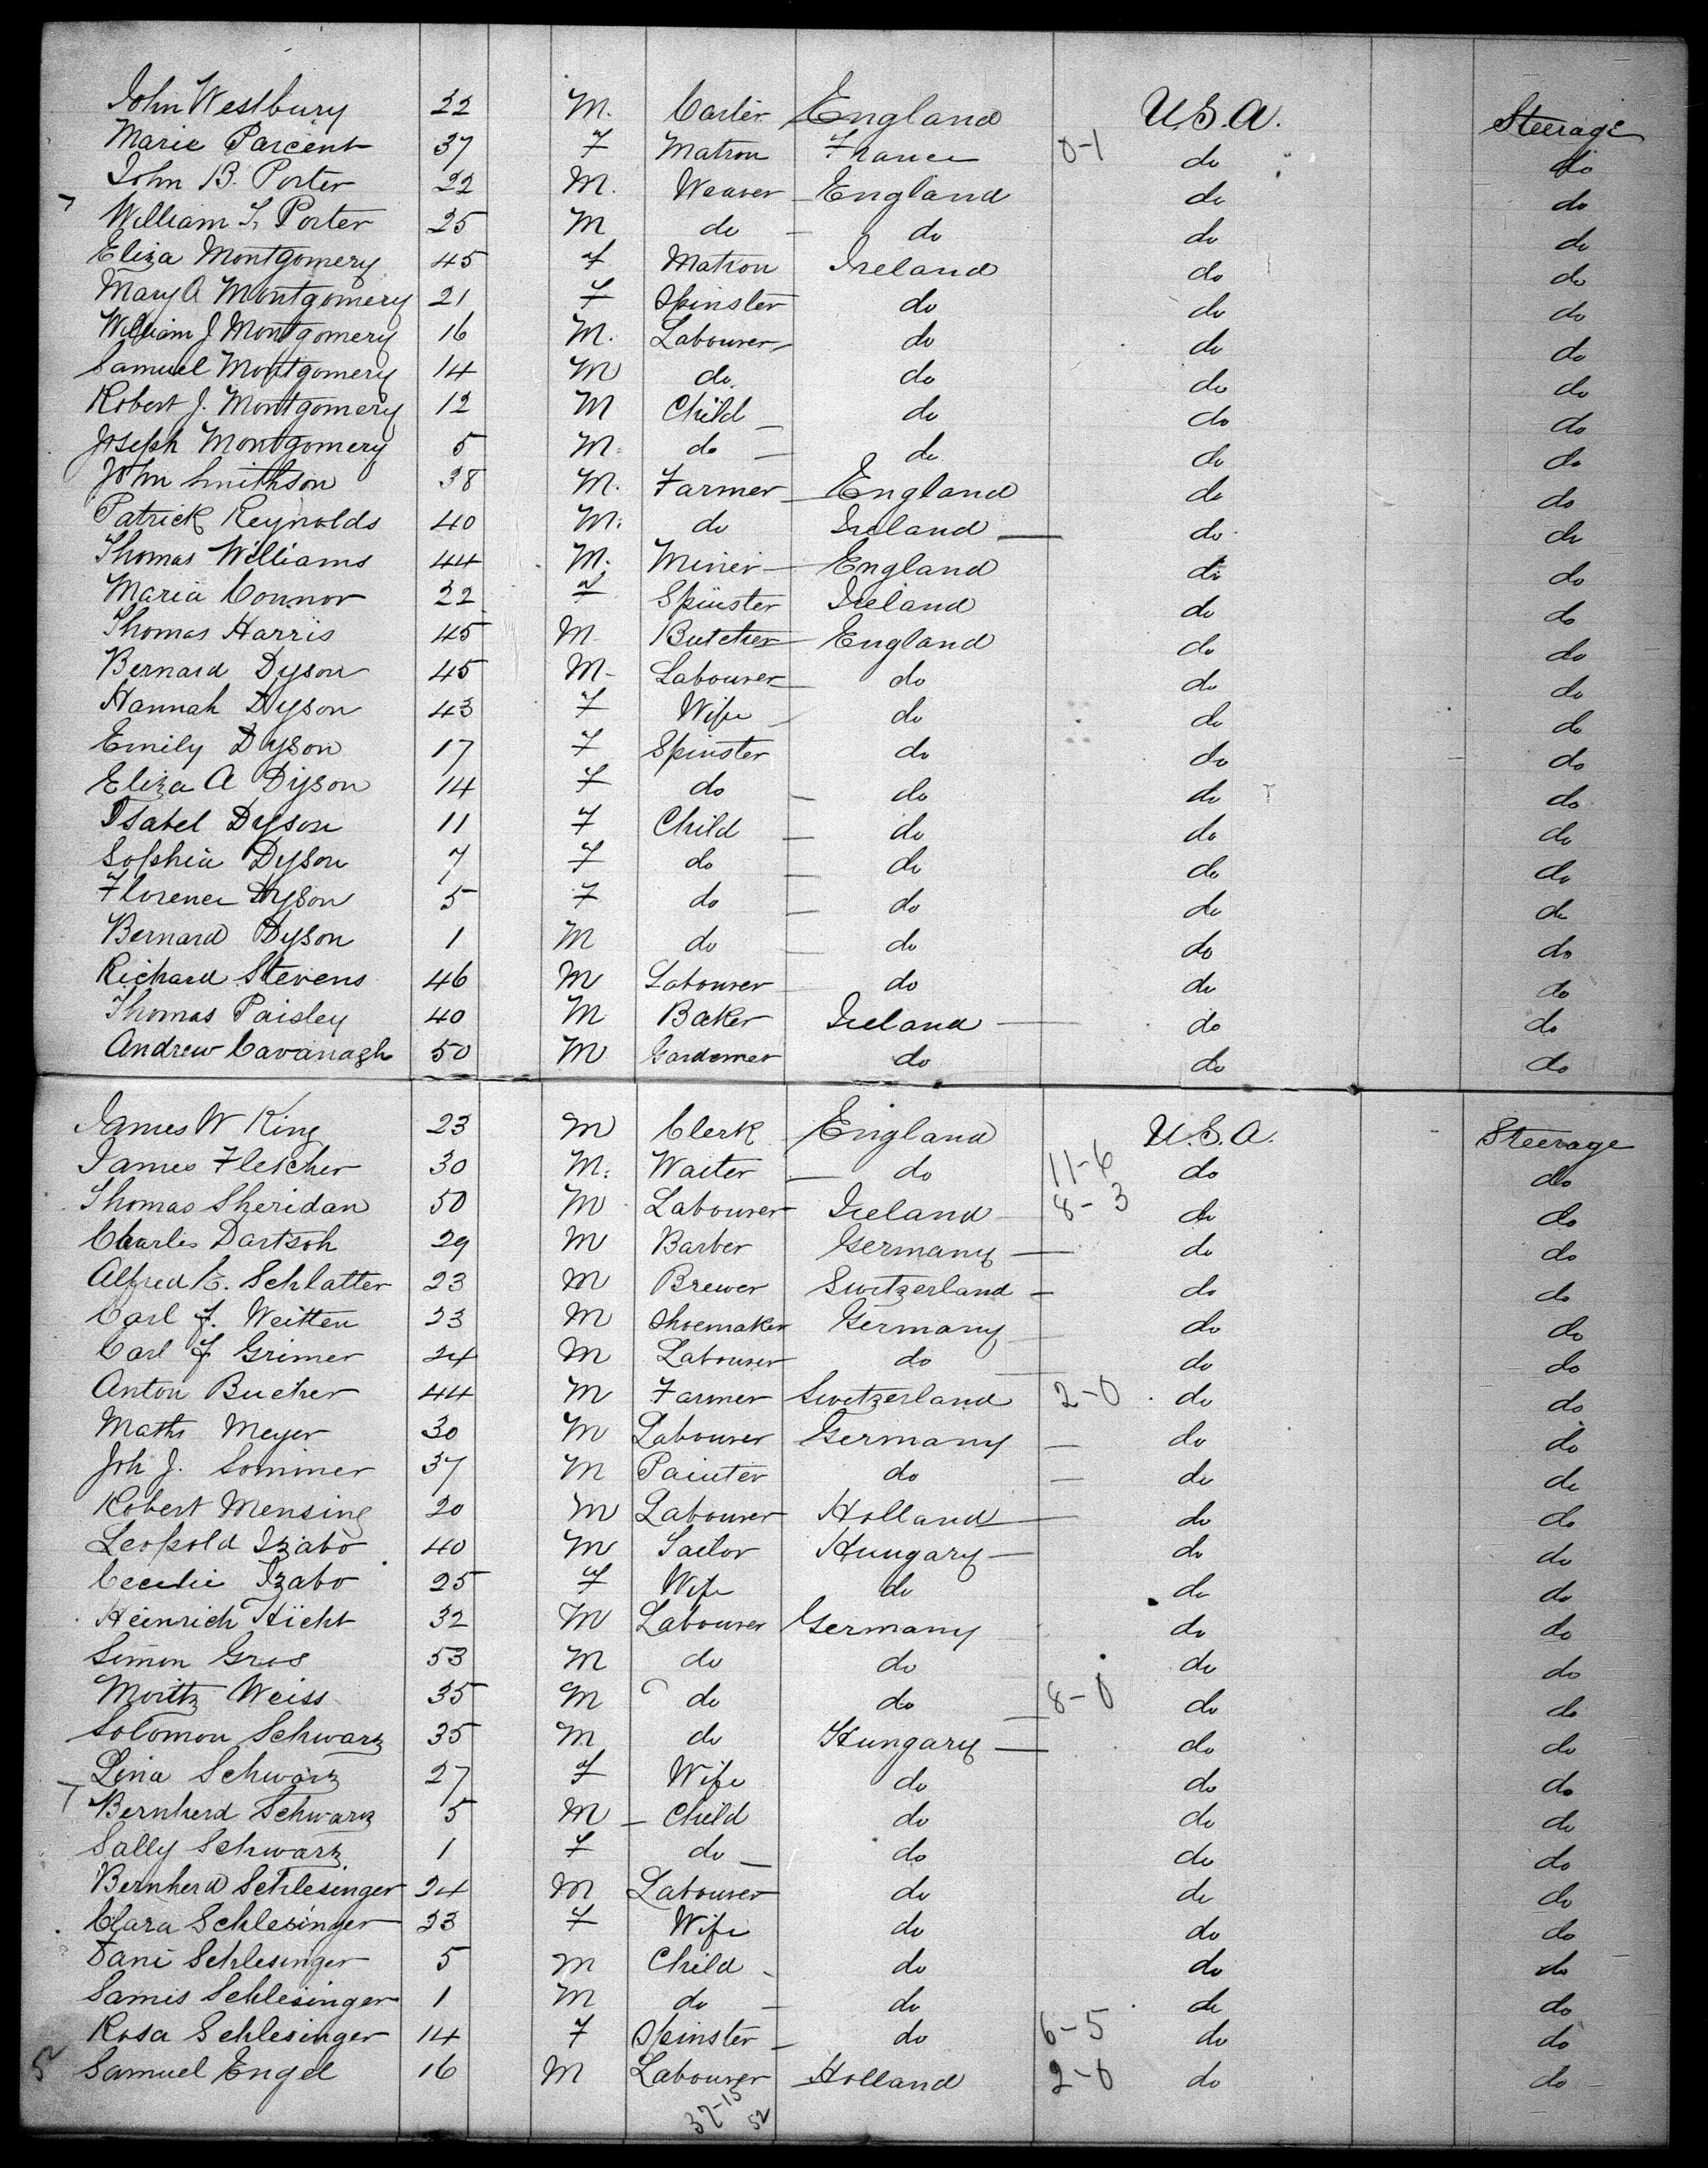 John Westbury 22 M. Carter England U.S.A. Steerage
Marie Parcent 37 F Matron France 0-1 do do
John B. Porter 22 M. Weaver England do do
William T. Porter 25 M do do do do
Eliza Montgomery 45 F Matron Ireland do do
Mary A Montgomery 21 F Spinster do do do
William J Montgomery 16 M. Labourer do do do
Samuel Montgomery 14 M do. do do do
Robert J. Montgomery 12 M Child do do do
Joseph Montgomery 5 M. do do do do
John Smithson 38 M. Farmer England do do
Patrick Reynolds 40 M. do Ireland do do
Thomas Williams 44 M. Miner England do do
Maria Connor 22 F Spinster Ireland do do
Thomas Harris 45 M Butcher England do do
Bernard Dyson 45 M Labourer do do do
Hannah Dyson 43 F Wife do do do
Emily Dyson 17 F Spinster do do do
Eliza A Dyson 14 F do do do do
Isabel Dyson 11 F Child do do do
Sophia Dyson 7 F do do do do
Florence Dyson 5 F do do do do
Bernard Dyson 1 M do do do do
Richard Stevens 46 M Labourer do do do
Thomas Paisley 40 M Baker Ireland do do
Andrew Cavanagh 50 M Gardemer do do do
James W King 23 M Clerk England U.S.A. Steerage
James Fletcher 30 M. Waiter do 11-6 do do
Thomas Sheridan 50 M Labourer Ireland 8-3 do do
Charles Dartsch 29 M Barber Germany do do
Alfred E. Schlatter 23 M Brewer Switzerland do do
Carl F. Weitten 23 M Shoemaker Germany do do
Carl F Grimer 24 M Labourer do do do
Anton Bucher 44 M Farmer Switzerland 2-0 do do
Maths Meyer 30 M Labourer Germany do do
Joh J. Sommer 37 M Painter do do do
Robert Mensing 20 M Labourer Holland do do
Leopold Izabo 40 M Tailor Hungary do do
Cecelie Izabo 25 F Wife do do do
Heinrich 32 M Labourer Germany do do
Simon Gros 53 M do do do do
Moritz Weiss 35 M do do 8-0 do do
Solomon Schwarz 35 M do Hungary do do
Lina Schwarz 27 F Wife do do do
Bernherd Schwarz 5 M Child do do do
Sally Schwarz 1 F do do do do
Bernherd Schlesinger 24 M Labourer do do do
Clara Schlesinger 23 F Wife do do do
Schlesinger 5 M Child do do do
Samis Schlesinger 1 M do do do do
Rosa Schlesinger 14 F Spinster do 6-5 do do
52 Samuel Engel 16 M Labourer Holland 2-0 do do
37-15 52